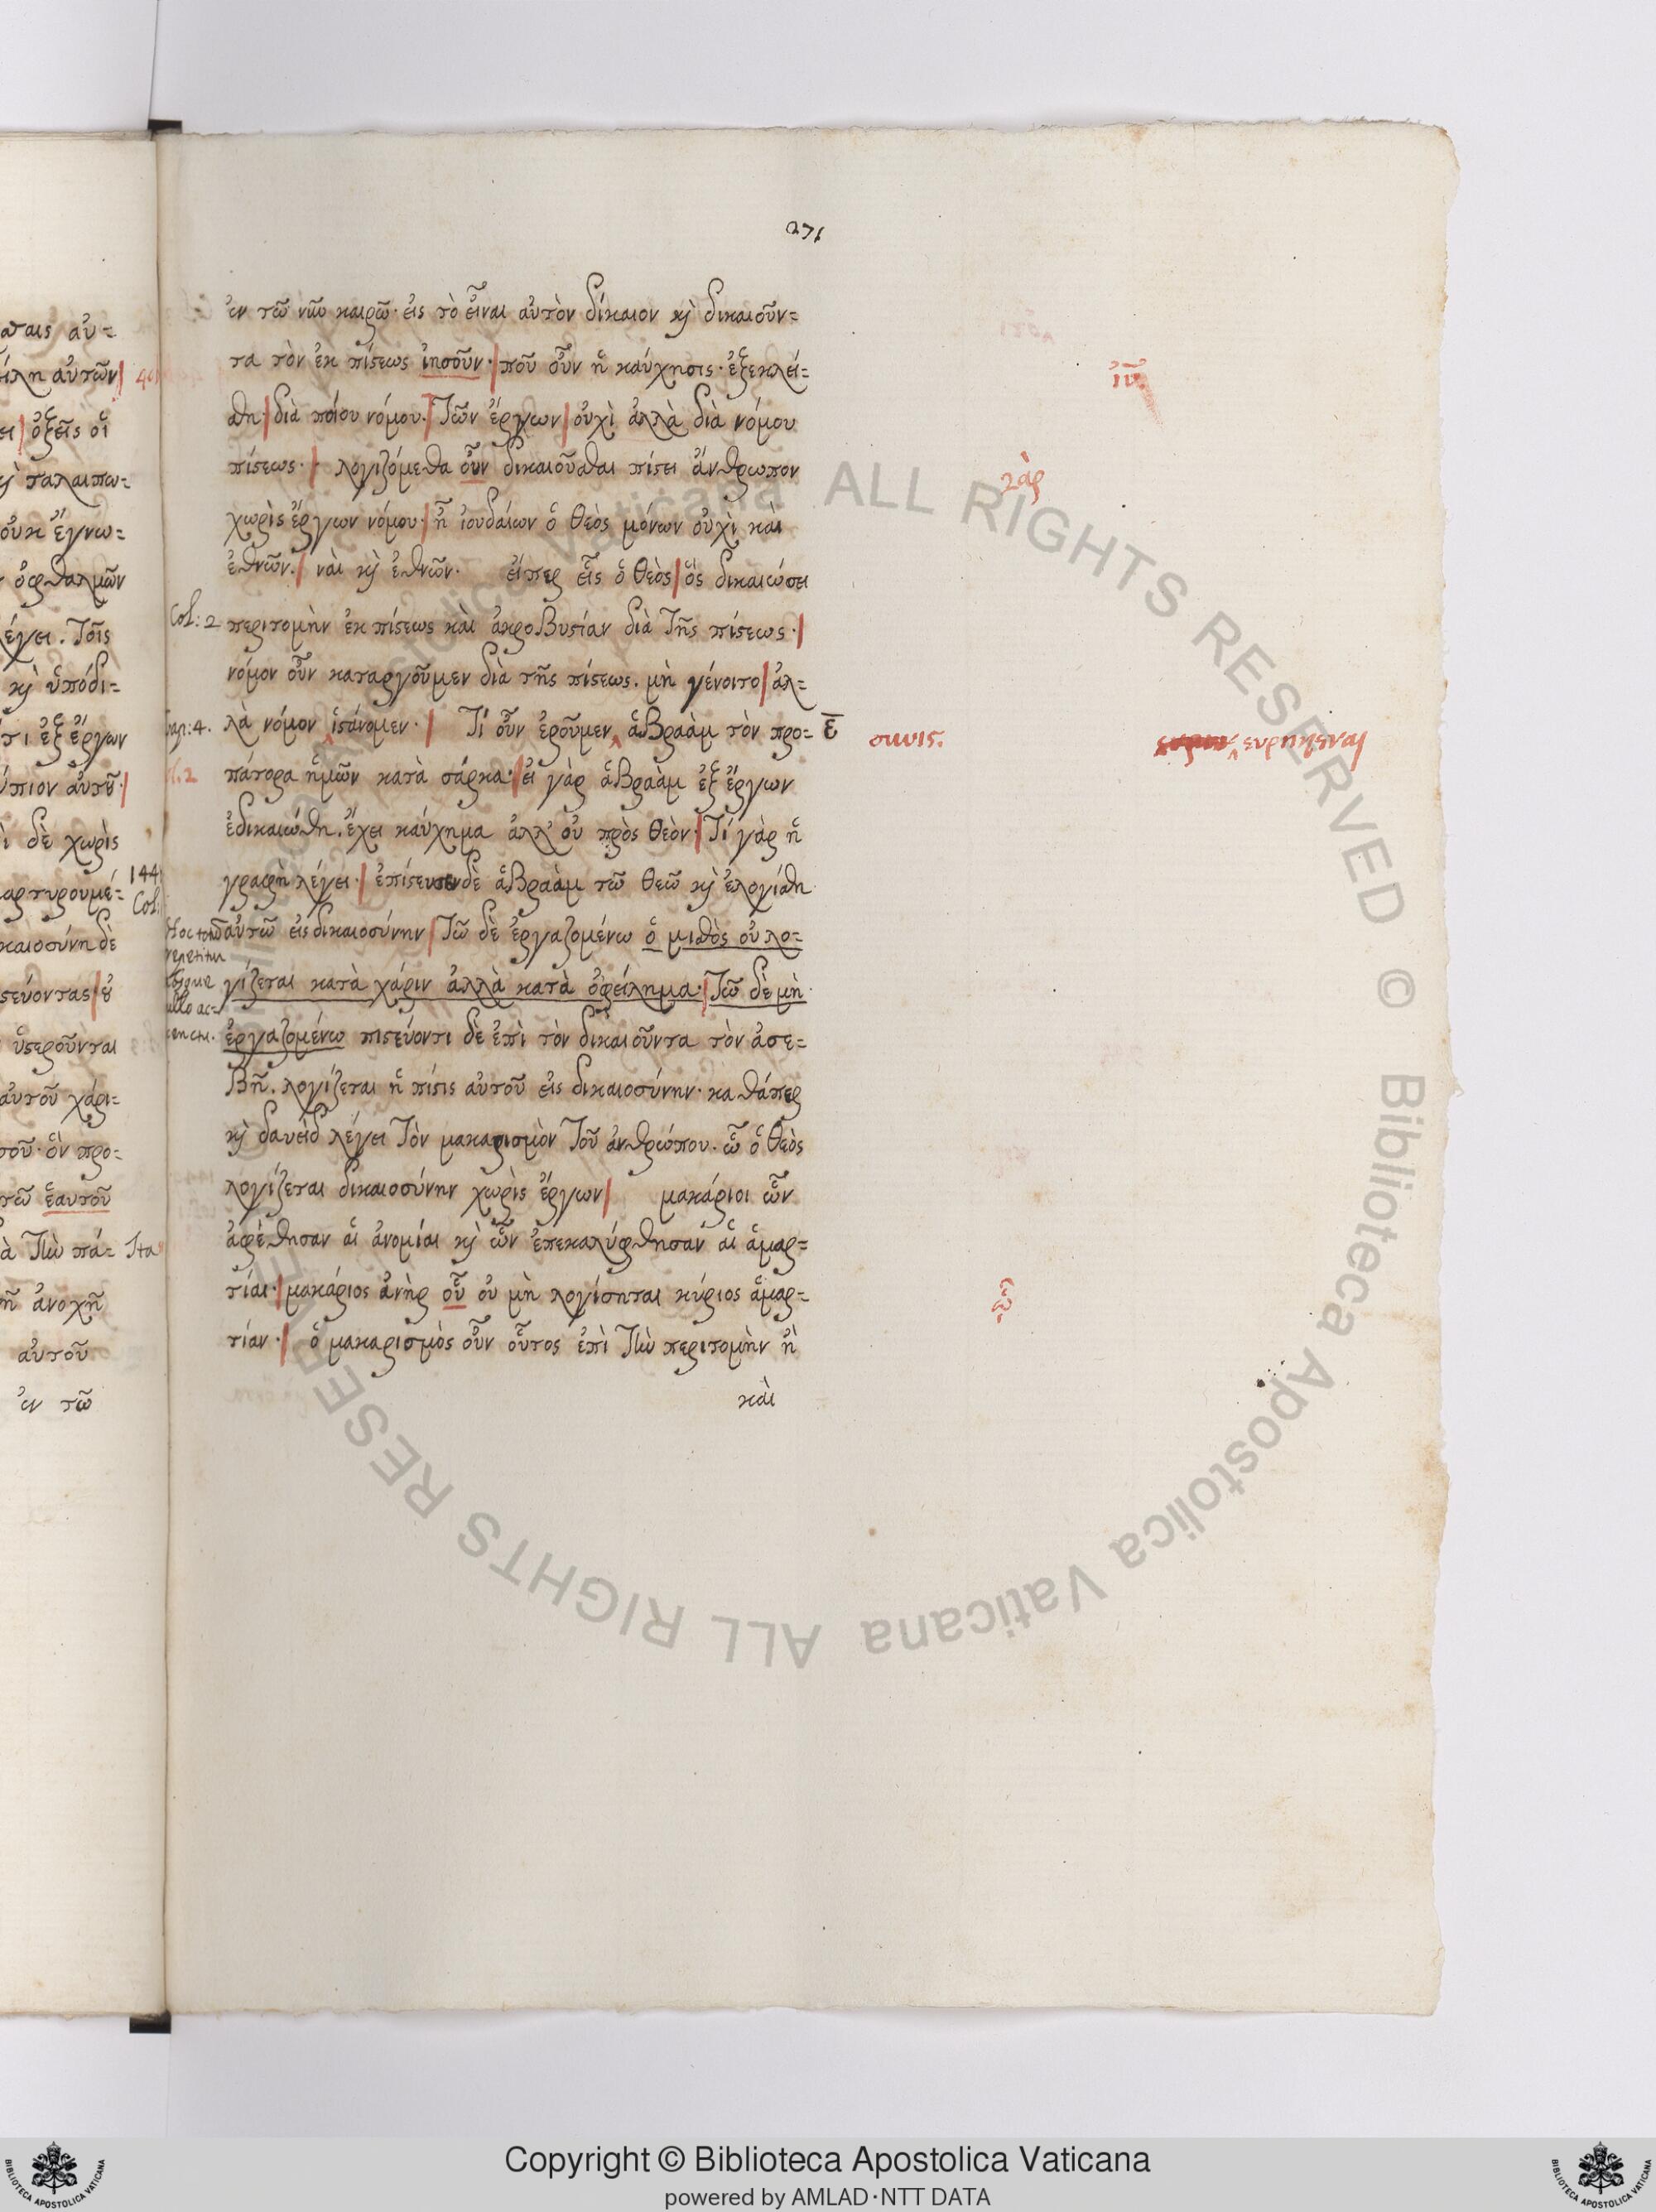 271
ἐν τῶ νῦν καιρῶ· εἰς τὸ εἶναι αὐτὸν δίκαιον κὶ δικαιοῦν=
τα τὸν ἐκ πίστεως ἰησοῦν·| ποῦ οὖν ἡ καύχησις· ἐξεκλεί=
ἰῦ.
σθη·| διὰ ποίου νόμου·| Τῶν ἔργων| οὐχὶ ἀλλὰ διὰ νόμου
πίστεως·| λογιζόμεθα οὖν δικαιοῦσθαι πίστει ἄνθρωπον
γὰρ
χωρὶς ἔργων νόμου·| ἢ ἰουδαίων ὁ θεὸς μόνων οὐχὶ καὶ
ἐθνῶν.| ναὶ κὶ ἐθνῶν· εἴπερ εἷς ὁ θεὸς| ὃς δικαιώσει
Col: 2 περιτομὴν ἐκ πίστεως καὶ ἀκροβυστίαν διὰ Τῆς πίστεως·|
νόμον οὖν καταργοῦμεν διὰ τῆς πίστεως. μὴ γένοιτο| ἀλ=
4. λὰ νόμον ἱστάνομεν·| Τί οὖν ἐροῦμεν ἀβραὰμ τὸν προ= ε̄
συνις.
πάτορα ἡμῶν κατὰ σάρκα·| εἰ γὰρ ἀβραὰμ ἐξ ἔργων
ἐδικαιώθη. ἔχει καύχημα ἀλλ' οὐ πρὸς θεὸν·| Τί γὰρ ἡ
γραφὴ λέγει·| ἐπίστευσεν δὲ ἀβραὰμ τῶ θεῶ κὶ ἐλογίσθη
αὐτῶ εἰς δικαιοσύνην| Τῶ δὲ ἐργαζομένω ὁ μισθὸς οὐ λο=
Hoc totum
repetitur
absque
ullo ac=
centu.
γίζεται κατὰ χάριν ἀλλὰ κατὰ ὀφείλημα·| Τῶ δὲ μὴ
ἐργαζομένω πιστεύοντι δὲ ἐπὶ τὸν δικαιοῦντα τὸν ἀσε=
βῆ. λογίζεται ἡ πίστις αὐτοῦ εἰς δικαιοσύνην· καθάπερ
κὶ δαυεὶδ λέγει Τὸν μακαρισμὸν Τοῦ ἀνθρώπου. ὧ ὁ θεὸς
λογίζεται δικαιοσύνην χωρὶς ἔργων| μακάριοι ὧν
ἀφέθησαν αἱ ἀνομίαι κὶ ὧν ἐπεκαλύφθησαν αἱ ἁμαρ=
τίαι·| μακάριος ἀνὴρ οὗ οὐ μὴ λογίσηται κύριος ἁμαρ=
ᾧ
τίαν·| ὁ μακαρισμὸς οὖν οὗτος ἐπὶ Τὴν περιτομὴν ἢ
καὶ
αὐ=
αὐτῶν|
ὀξεῖς οἱ
κὶ ταλαιπω=
οὐκ ἔγνω=
ὀφθαλμῶν
λέγει. Τοῖς
κὶ ὑπόδι=
ἐξ ἔργων
αὐτοῦ·|
δὲ χωρὶς
144
Col.
δὲ
ὑστεροῦνται
αὐτοῦ χάρι=
ὃν προ=
τῶ ἑαυτοῦ
Τὴν πά= Ita
ἀνοχῆ
αὐτοῦ
ἐν τῶ